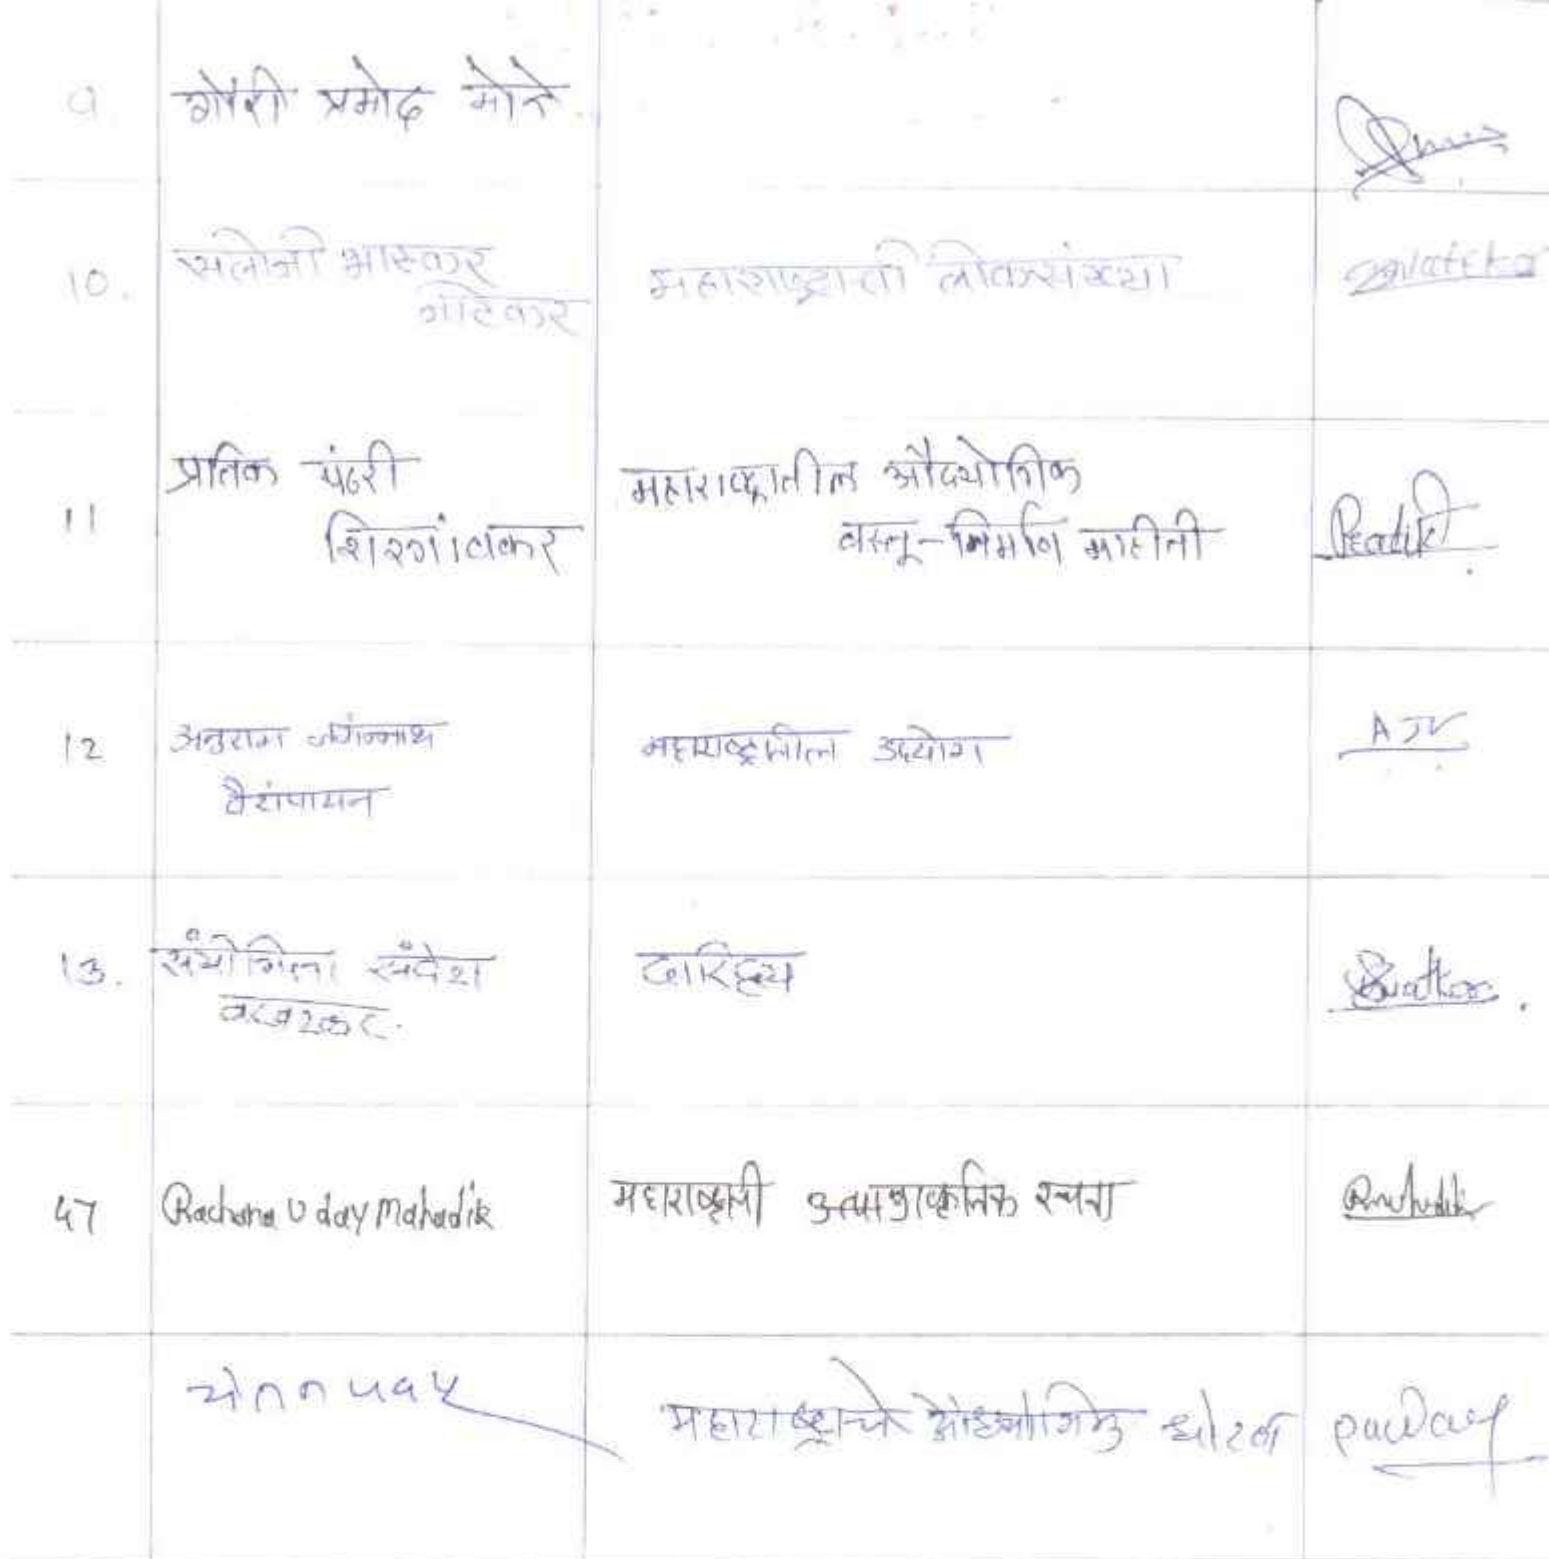 9. गौरी प्रमोद मोने.
10. सलोनी भास्कर
गोटेकर
महाराष्ट्राची लोकसंख्या
11 प्रतिक पंढरी
शिरगांवकर
महाराष्ट्रातील औदयोगिक
वस्तू-निर्माण माहीती
Pratik
12 अनुराग जगंन्नाथ
वैशंपायन
महाराष्ट्रातील उदयोग
AJV
13. संयोगिता संदेश
दारिद्र्य
47 Rachana Uday Mahadik
महाराष्ट्राची प्राकृतिक रचना
चेतन पवार
महाराष्ट्राचे औद्योगिक धोरण
pawar